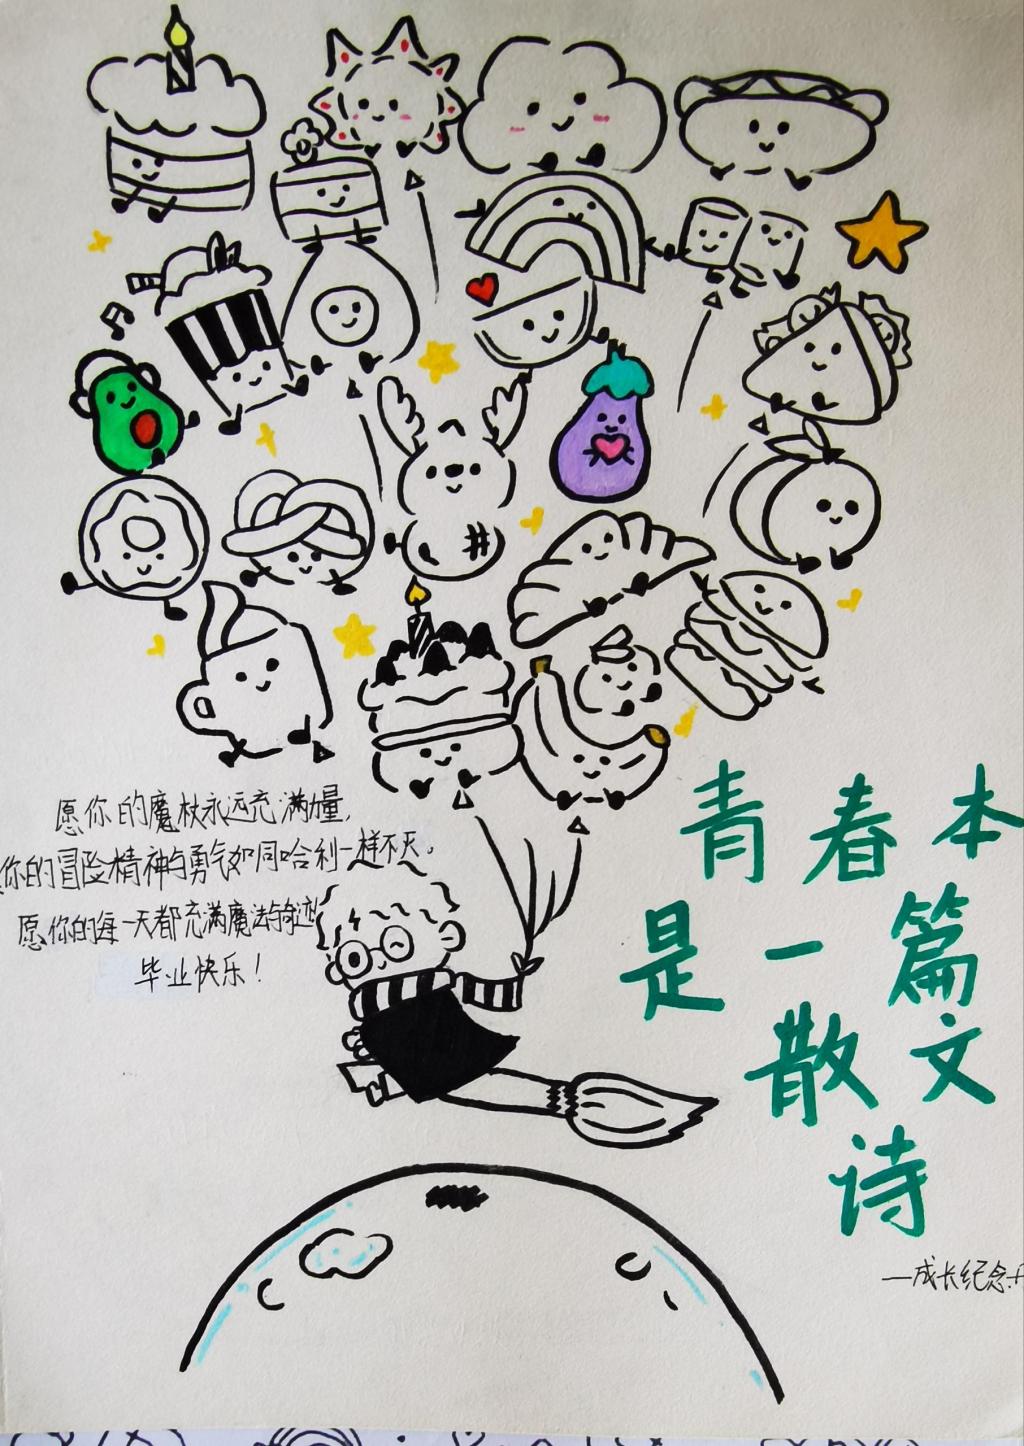 愿你的魔杖永远充满力量,
你的冒险精神与勇气如同哈利一样不灭。
愿你的每一天都充满魔法与奇迹!
毕业快乐!
青春本
是一篇
散文
诗
—成长纪念册